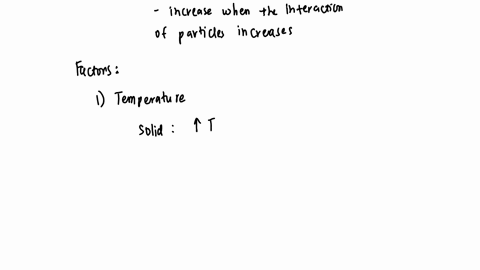 - increase when the interaction
of particles increases
Factors:
1) Temperature
Solid: ↑ T